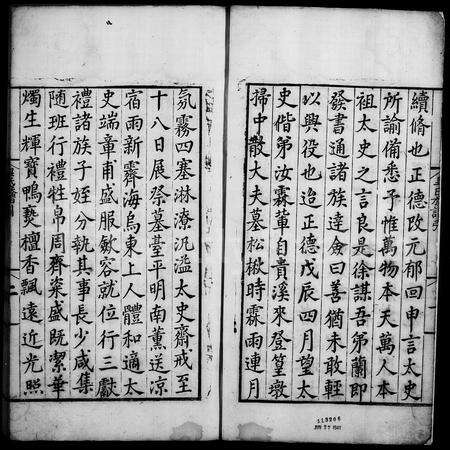 續脩也正德改元郁回申言太史
所諭備悉予惟萬物本天萬人本
祖太史之言良是徐謀吾弟蘭即
發書通諸族達僉曰善猶未敢輕
以興役也迨正德戊辰四月望太
史偕弟汝霖輩自貴溪來登篁墩
掃中散大夫墓松楸時霖雨連月
氛霧四塞淋潦汎溢太史齋戒至
十八日展祭墓臺平明南薰送凉
宿雨新霽海烏東上人體和適太
史端章甫盛服斂容就位行三獻
禮諸族子姪分執其事長少咸集
随班行禮牲帛周齊粢盛旣潔華
燭生輝寶鴨爇檀香飄遠近光照